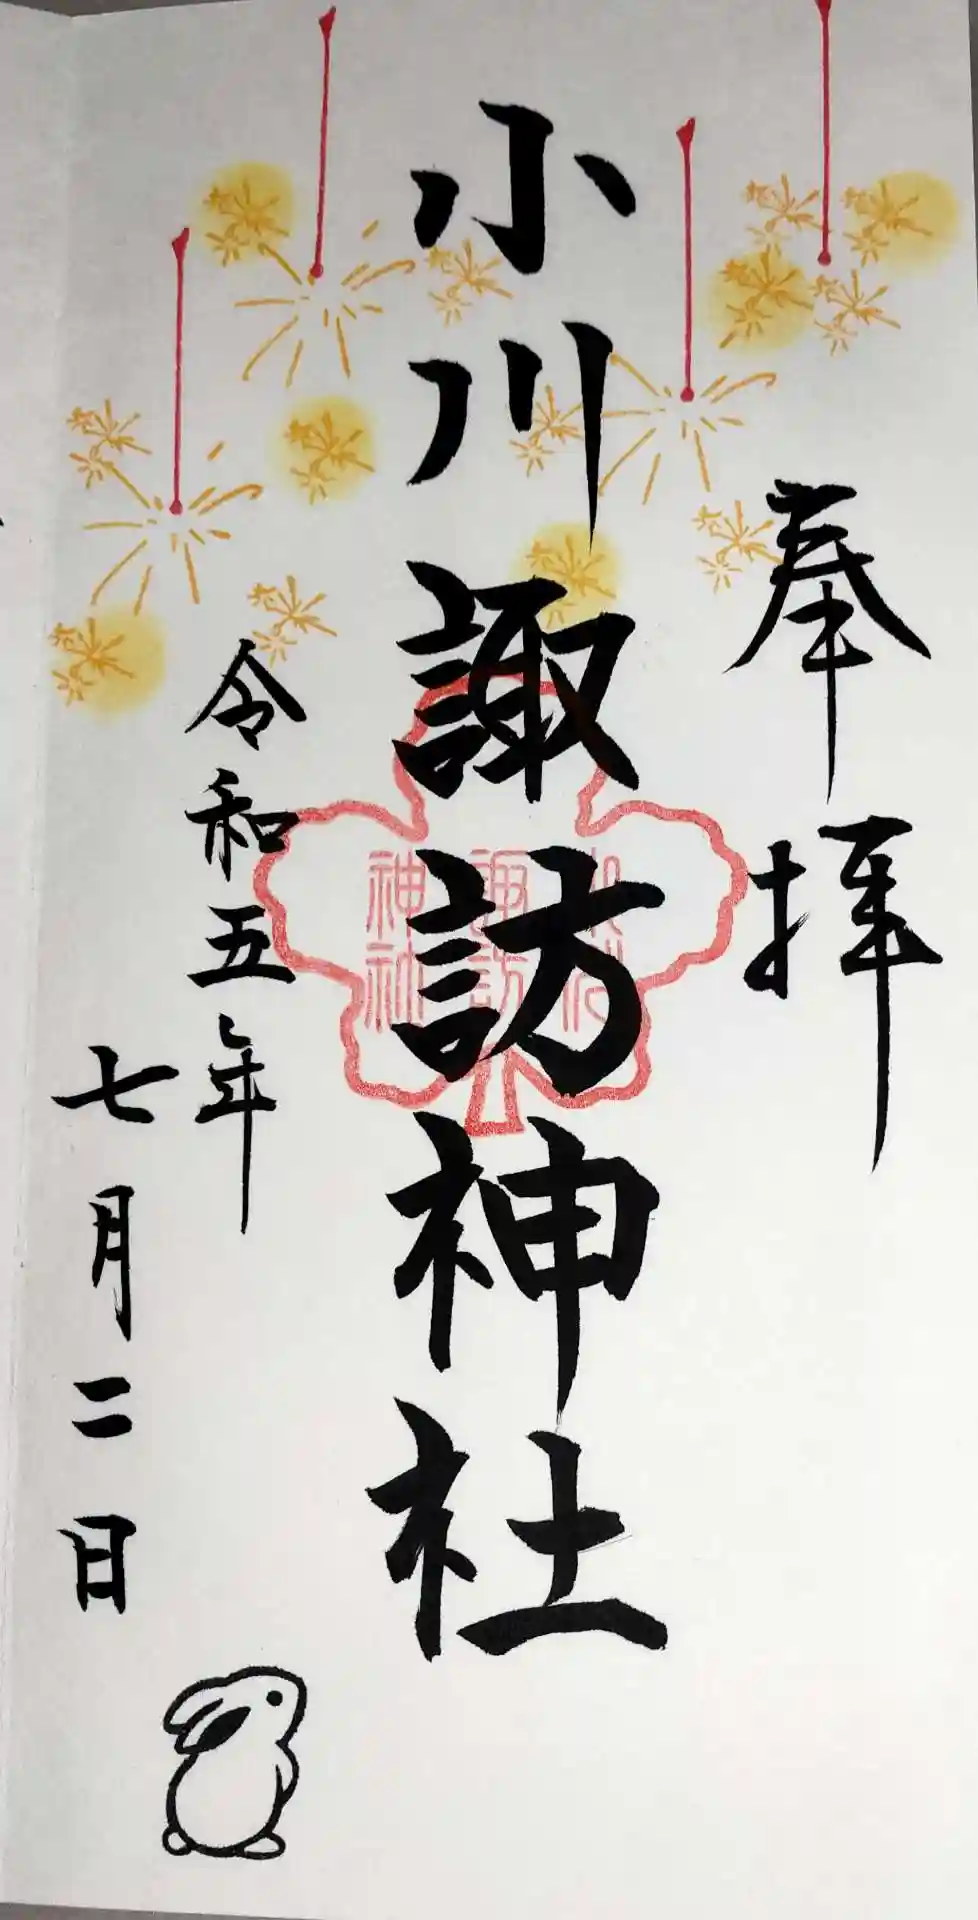 奉拝
小川諏訪神社
諏訪
神社
令和五年
七月二日